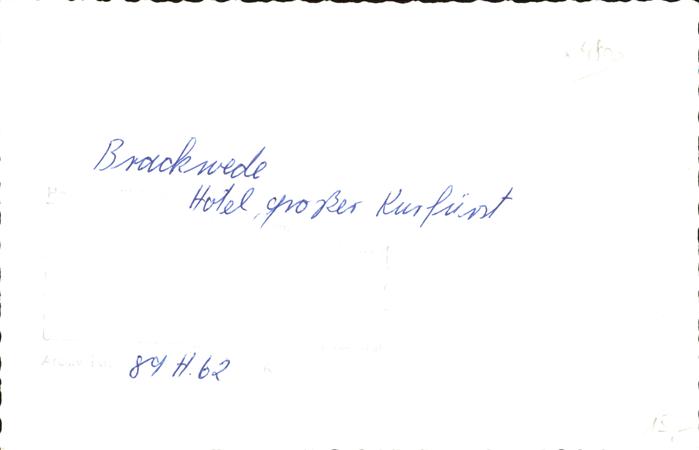 Brackwede
Hotel „großer Kurfürst
89 H.62
15,-